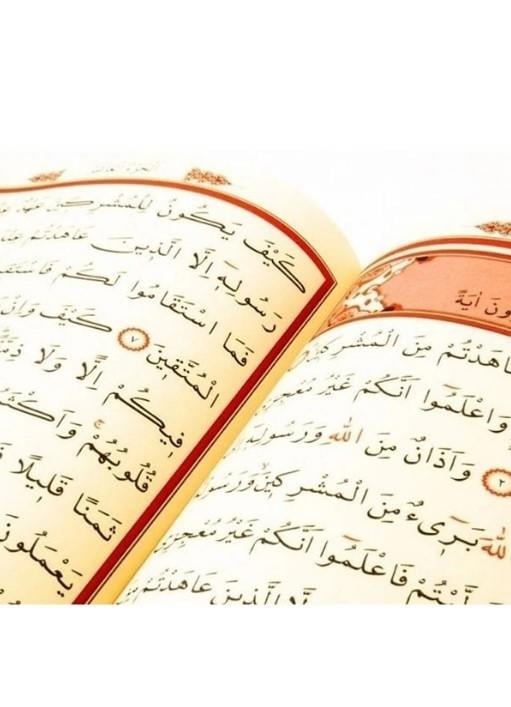 ونَ اٰيَةً
عَاهَدْتُمْ مِنَ الْمُشْرِكٖينَ
وَاعْلَمُٓوا اَنَّكُمْ غَيْرُ مُعْجِزِي
٢ وَاَذَانٌ مِنَ اللّٰهِ وَرَسُولِهٖٓ
اللّٰهَ بَرٖٓيءٌ مِنَ الْمُشْرِكٖينَ وَرَسُولُهُ
فَاعْلَمُٓوا اَنَّكُمْ غَيْرُ مُعْجِزِي
اِلَّا الَّذٖينَ عَاهَدْتُمْ
كَيْفَ يَكُونُ لِلْمُشْرِكٖينَ عَهْدٌ
رَسُولِهٖٓ اِلَّا الَّذٖينَ عَاهَدْتُمْ
فَمَا اسْتَقَامُوا لَكُمْ فَاسْتَقٖ
الْمُتَّقٖينَ ٧ كَيْفَ وَاِنْ
فٖيكُمْ اِلًّا وَلَا ذِمَّ
قُلُوبُهُمْۚ وَاَكْثَ
ثَمَنًا قَلٖيلًا فَ
يَعْمَلُونَ